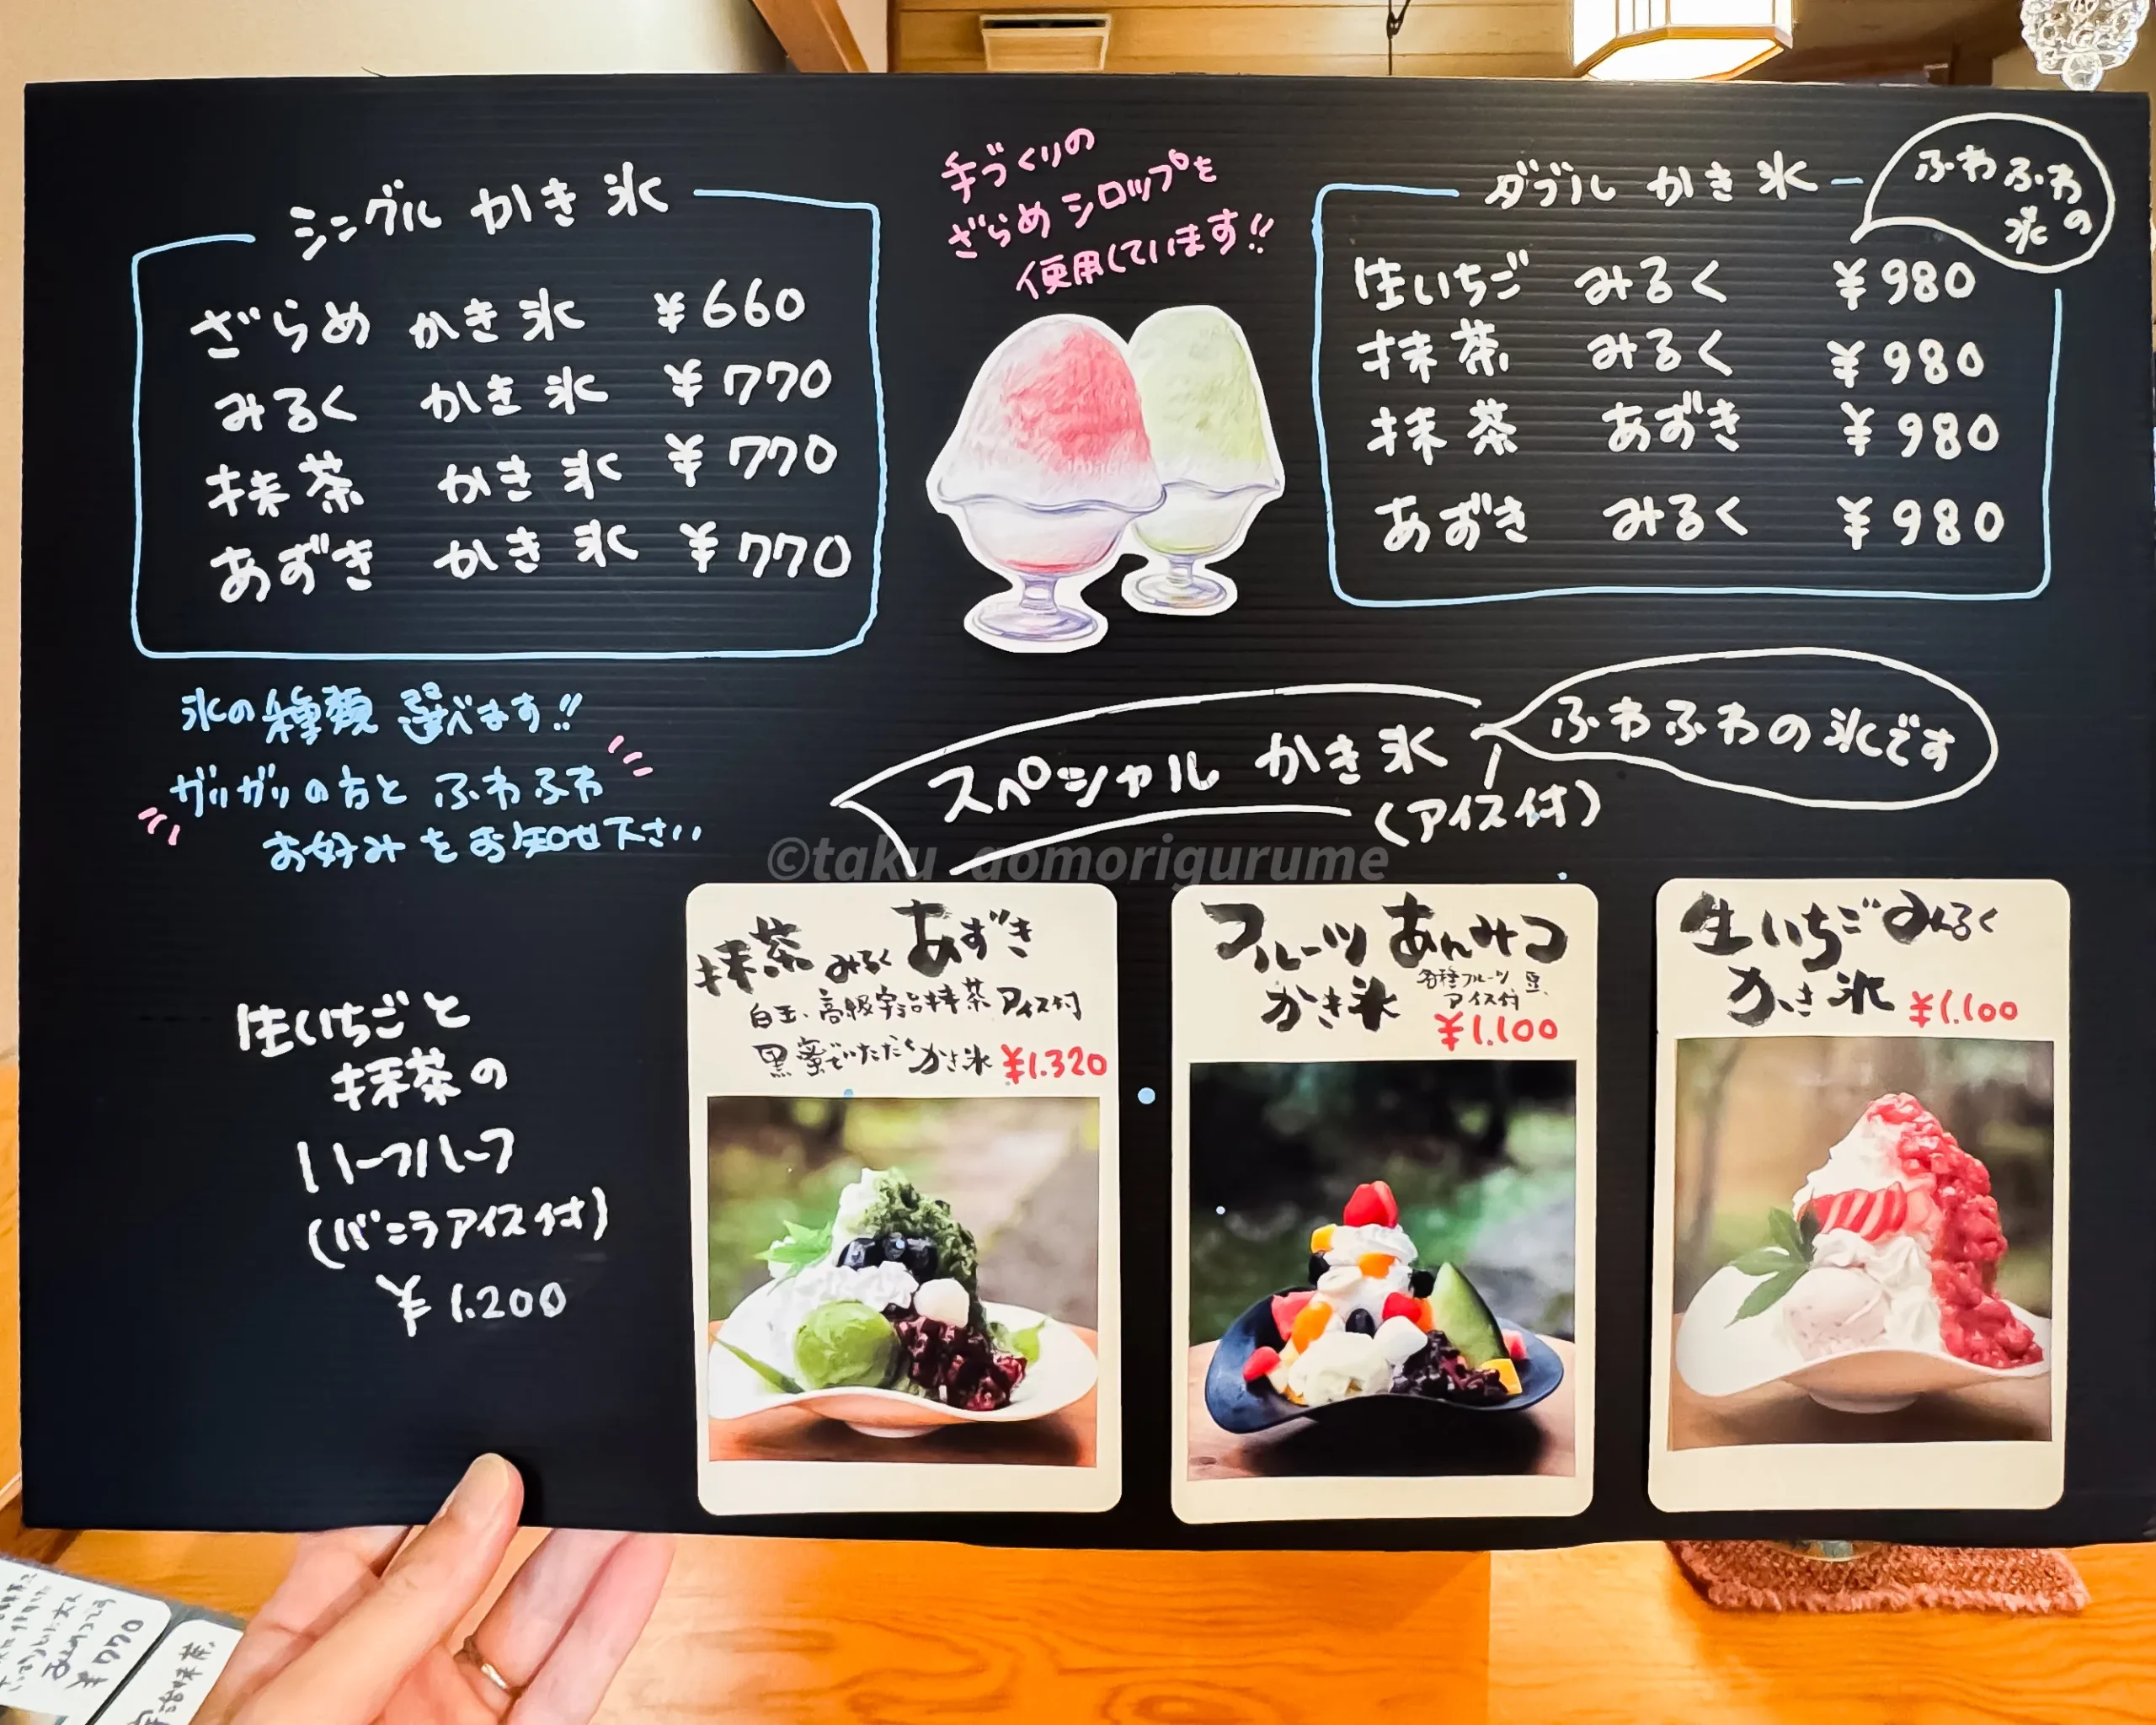 シングル かき氷
ざらめ かき氷 ¥660
みるく かき氷 ¥770
抹茶 かき氷 ¥770
あずき かき氷 ¥770
手づくりの
ざらめシロップを
使用しています!!
ダブル かき氷
ふわふわ
氷の
生いちご みるく ¥980
抹茶 みるく ¥980
抹茶 あずき ¥980
あずき みるく ¥980
氷の種類 選べます!!
ガリガリの方と ふわふわ
お好みをお知せ下さい
スペシャル かき氷
(アイス付)
ふわふわの氷です
©taku_aomorigurume
生いちごと
抹茶の
ハーフハーフ
(バニラアイス付)
¥1.200
抹茶みるくあずき
白玉、高級宇治抹茶アイス付
黒蜜でいただくかき氷 ¥1.320
フルーツ あんみつ
かき氷
各種フルーツ 豆、
アイス付
¥1.100
生いちごみるく
かき氷 ¥1.100
¥770